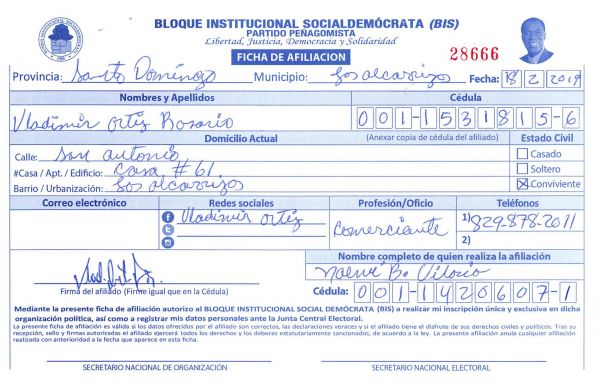 BLOQUE INSTITUCIONAL SOCIALDEMÓCRATA (BIS)
PARTIDO PEÑAGOMISTA
Libertad, Justicia, Democracia y Solidaridad
FICHA DE AFILIACION
28666
Provincia: Santo Domingo Municipio: Los alcarrizos Fecha: 18/2/2019
Nombres y Apellidos
Cédula
Vladimir Ortiz Rosario
001-1531815-6
Domicilio Actual
(Anexar copia de cédula del afiliado)
Estado Civil
Calle: San antonio
Casado
#Casa / Apt. / Edificio: Casa #61
Soltero
Barrio / Urbanización: Los alcarrizos
Conviviente
Correo electrónico
Redes sociales
Profesión/Oficio
Teléfonos
Vladimir ortiz
Comerciante
1) 829-878-2011
2)
Nombre completo de quien realiza la afiliación
Firma del afiliado (Firme igual que en la Cédula)
Cédula: 001-1420607-1
Mediante la presente ficha de afiliación autorizo al BLOQUE INSTITUCIONAL SOCIAL DEMÓCRATA (BIS) a realizar mi inscripción única y exclusiva en dicha
organización política, así como a registrar mis datos personales ante la Junta Central Electoral.
La presente ficha de afiliación es válida si los datos ofrecidos por el afiliado son correctos, las declaraciones veraces y si el afiliado tiene el disfrute de sus derechos civiles y políticos. Tras su
recepción, sello y firmas autorizadas el afiliado ejercerá todos los derechos y los deberes estatutariamente sancionados, de acuerdo a la ley. La presente afiliación anula cualquier afiliación
realizada con anterioridad a la fecha que aparece en esta ficha.
SECRETARIO NACIONAL DE ORGANIZACIÓN
SECRETARIO NACIONAL ELECTORAL